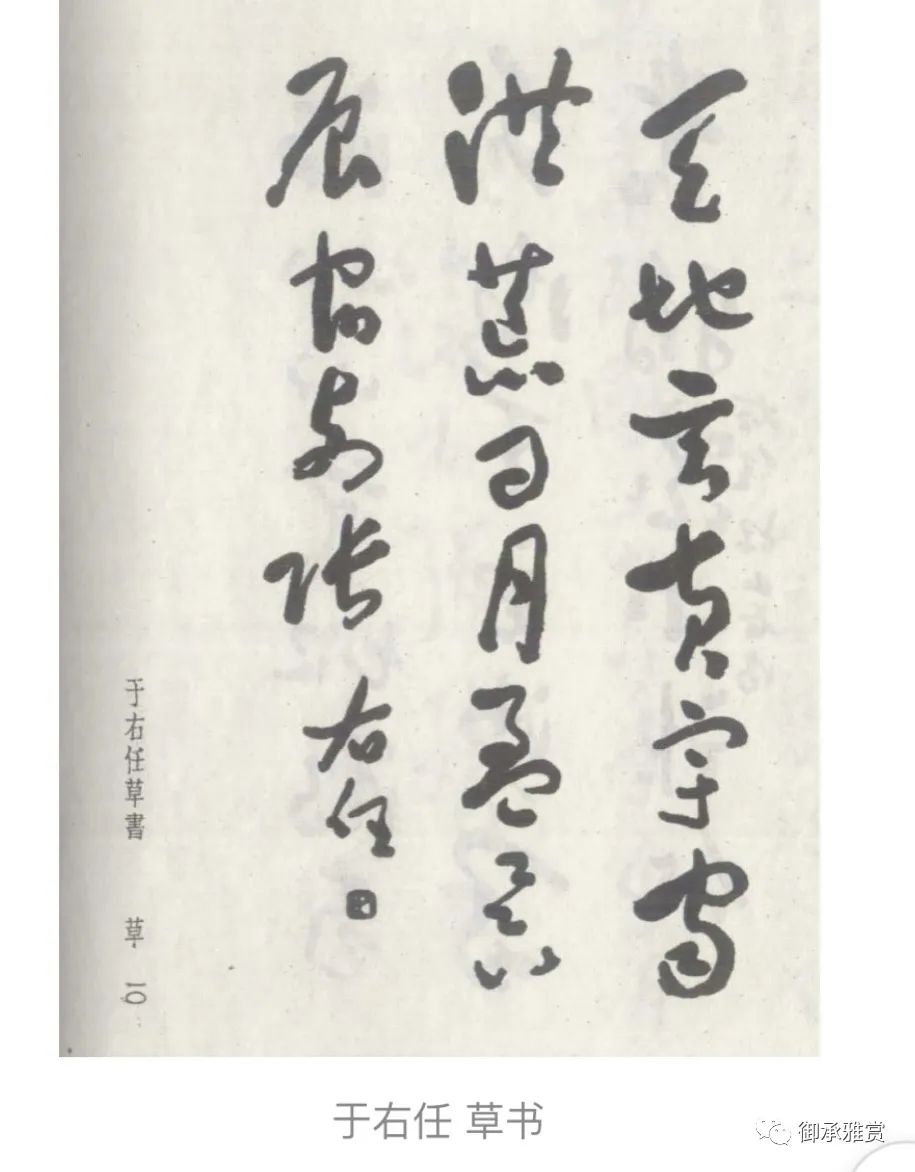 天地玄黃宇宙
洪荒日月盈昃
辰宿列張 右任
于右任草書 草 一〇
于右任 草书
御承雅赏